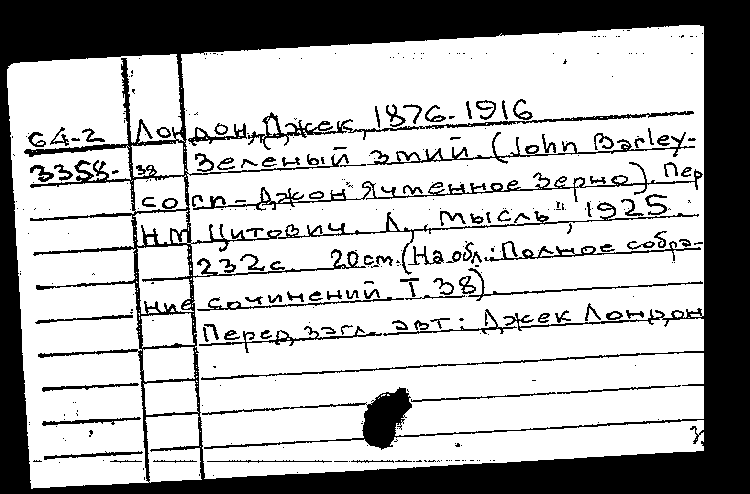 64-2 Лондон, Джек, 1876-1916
3358- 38 Зеленый змий. (John Barley-
corn = Джон Ячменное Зерно). Пер
Н.М. Цитович. Л., „Мысль", 1925.
232 с. 20 см. (На обл.: Полное собра-
ние сочинений. Т. 38).
Перед загл. авт: Джек Лондон